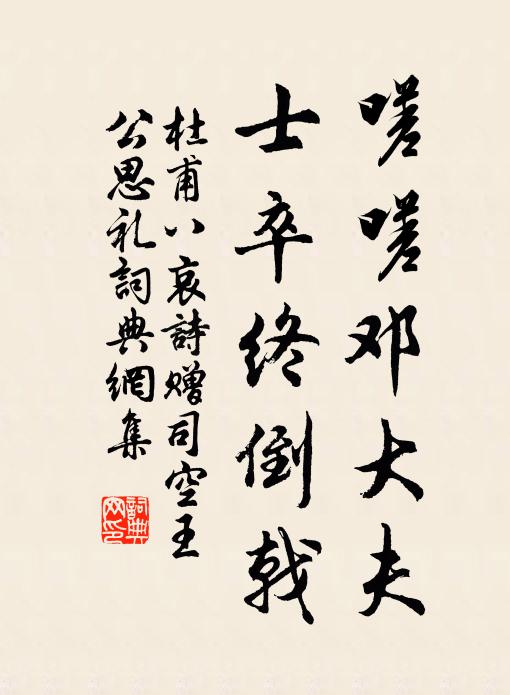 嗟嗟邓大夫
士卒终倒戟
杜甫八哀詩赠司空王
公思礼詞典網集
詞典网印